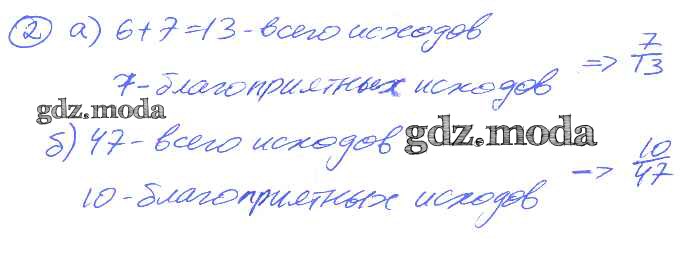 2 а) 6+7=13 - всего исходов
7 - благоприятных исходов => 7/13
gdz.moda
б) 47 - всего исходов gdz.moda
10 - благоприятных исходов -> 10/47